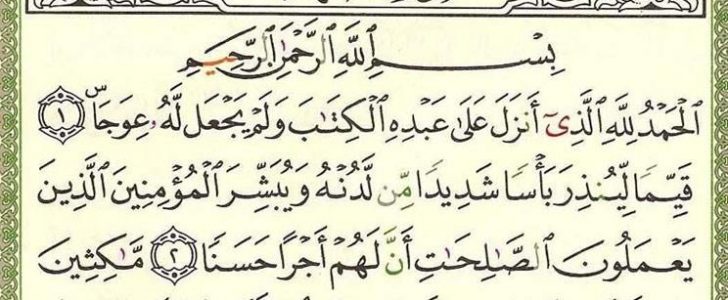 بِسْمِ ٱللَّهِ ٱلرَّحْمَٰنِ ٱلرَّحِيمِ
ٱلْحَمْدُ لِلَّهِ ٱلَّذِىٓ أَنزَلَ عَلَىٰ عَبْدِهِ ٱلْكِتَٰبَ وَلَمْ يَجْعَل لَّهُۥ عِوَجَاۜ ١
قَيِّمًا لِّيُنذِرَ بَأْسًا شَدِيدًا مِّن لَّدُنْهُ وَيُبَشِّرَ ٱلْمُؤْمِنِينَ ٱلَّذِينَ
يَعْمَلُونَ ٱلصَّٰلِحَٰتِ أَنَّ لَهُمْ أَجْرًا حَسَنًا ٢ مَّٰكِثِينَ